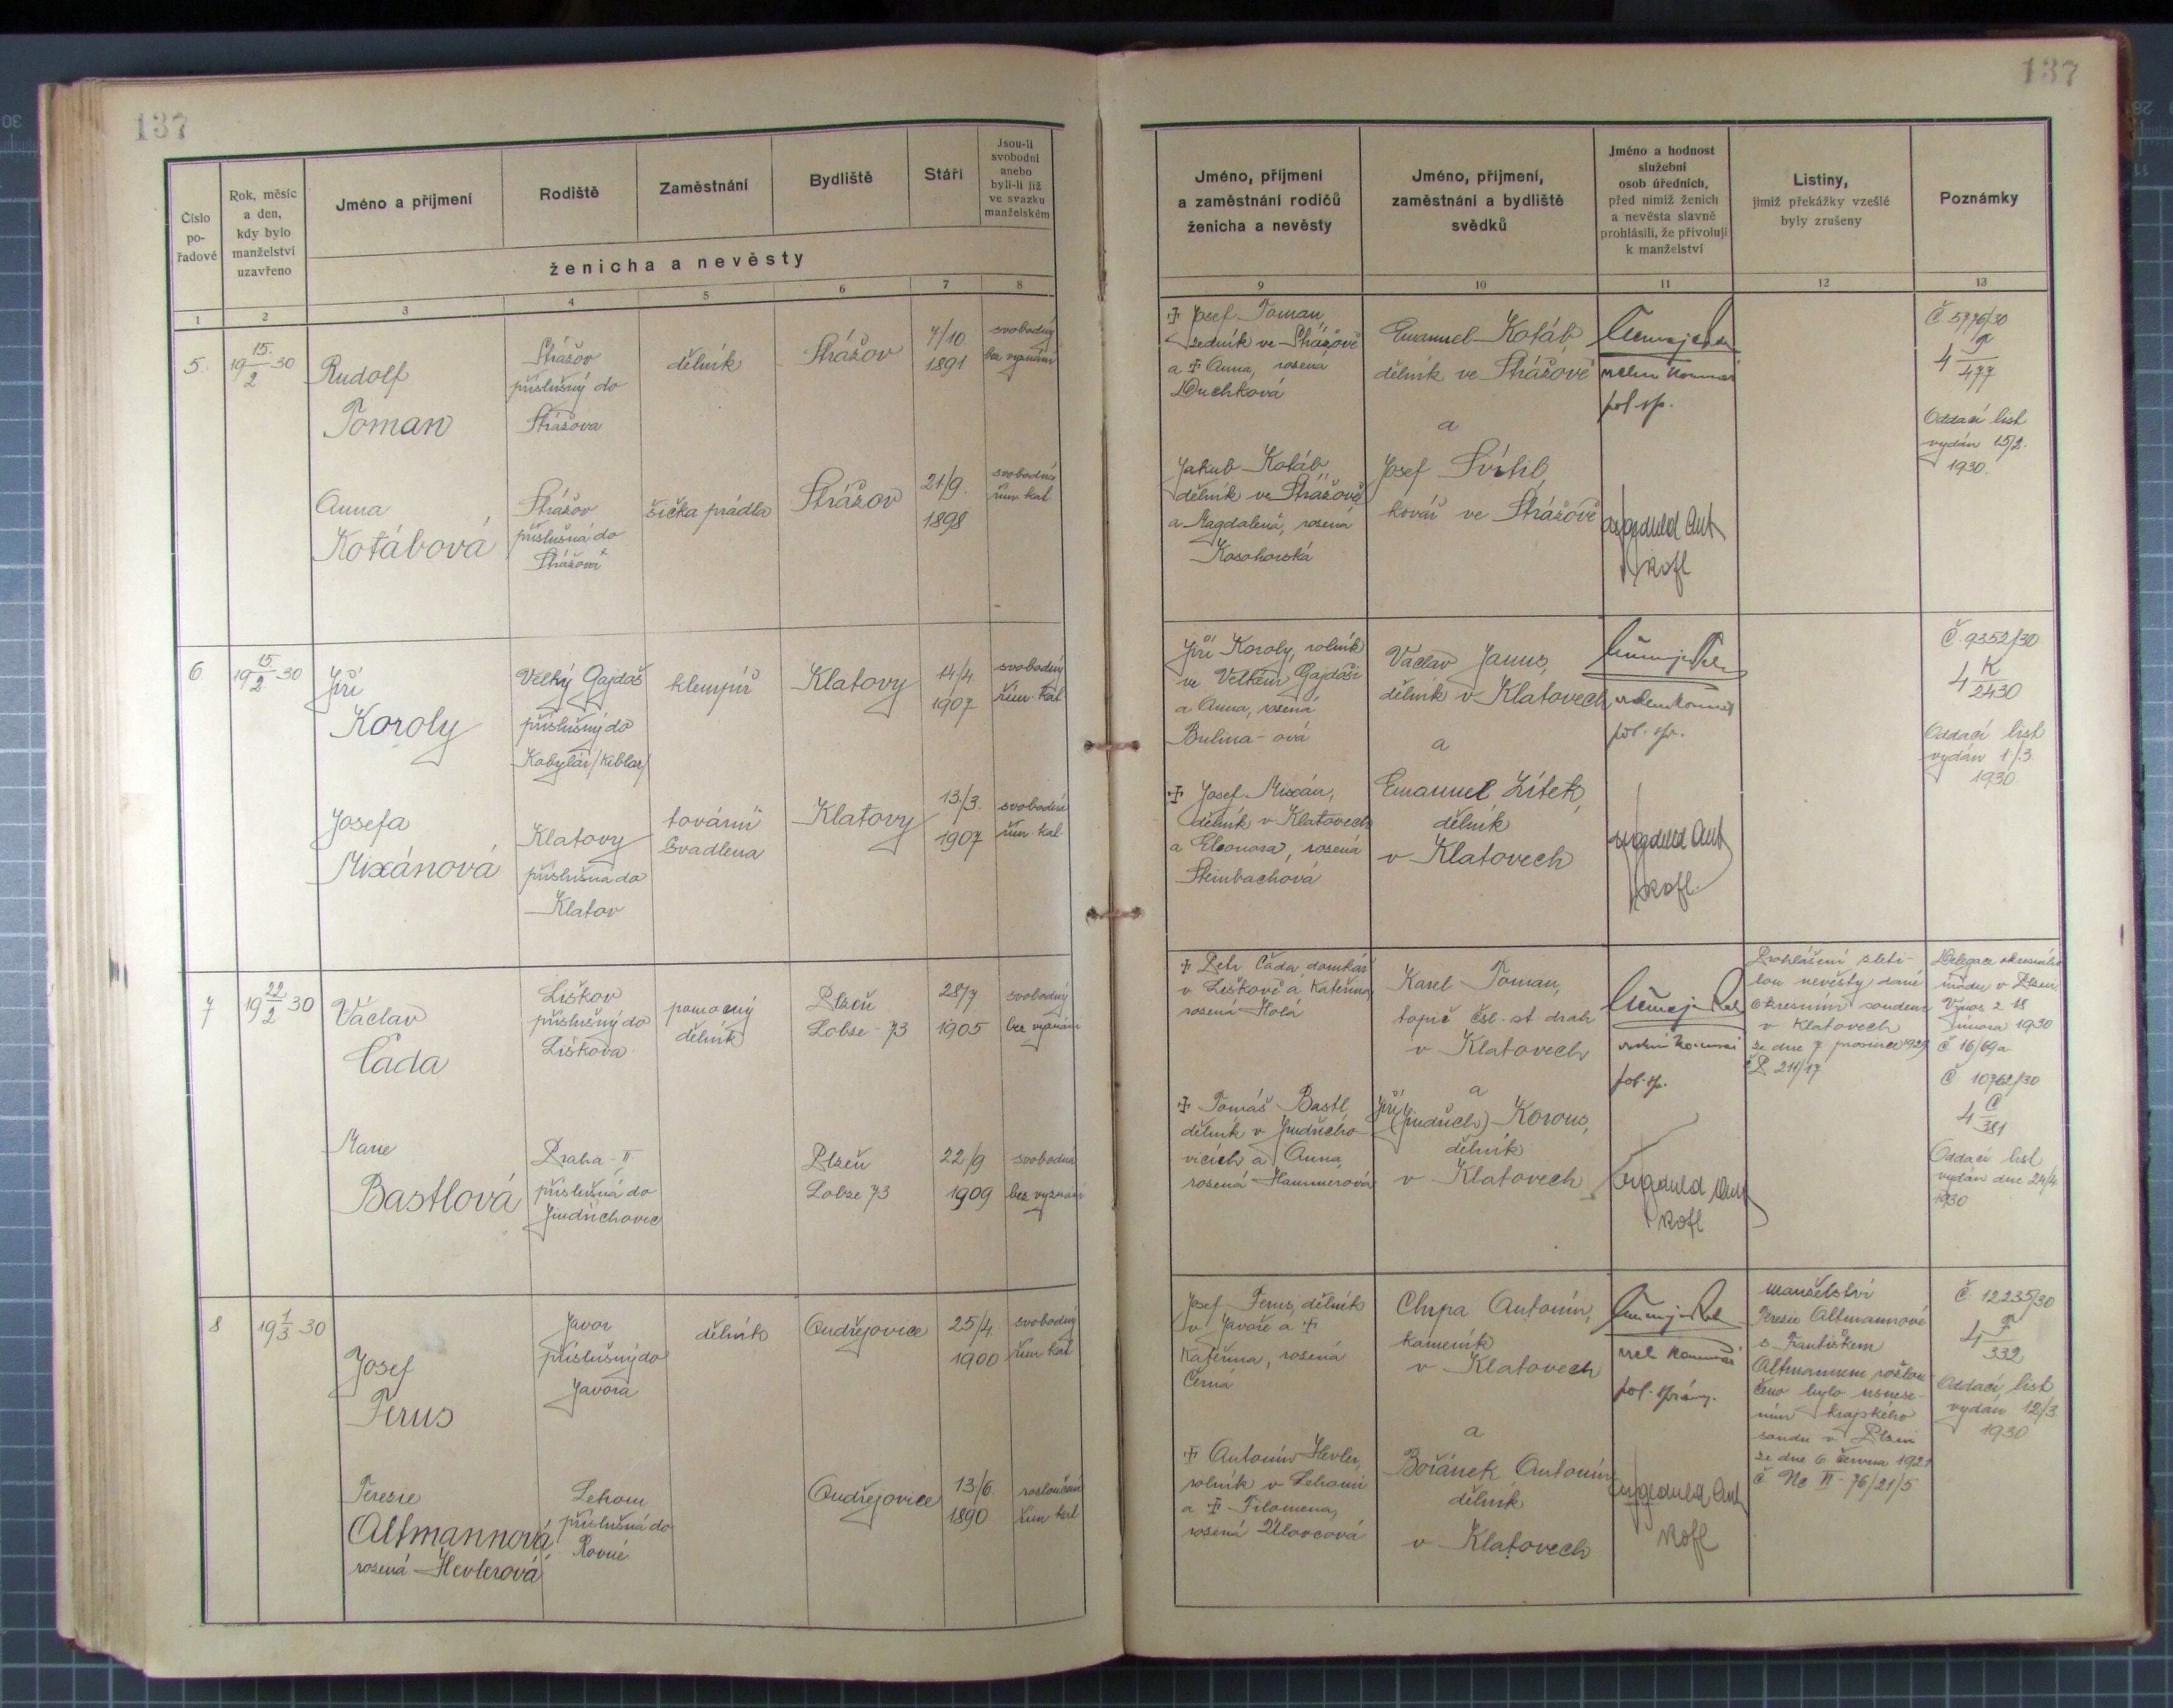 137
137
Číslo
po-
řadové
Rok, měsíc
a den,
kdy bylo
manželství
uzavřeno
Jméno a příjmení
Rodiště
Zaměstnání
Bydliště
Stáří
Jsou-li
svobodni
anebo
byli-li již
ve svazku
manželském
ženicha a nevěsty
1
2
3
4
5
6
7
8
Jméno, příjmení
a zaměstnání rodičů
ženicha a nevěsty
Jméno, příjmení,
zaměstnání a bydliště
svědků
Jméno a hodnost
služební
osob úředních,
před nimiž ženich
a nevěsta slavně
prohlásili, že přivolují
k manželství
Listiny,
jimiž překážky vzešlé
byly zrušeny
Poznámky
9
10
11
12
13
5.
19 15./2 30
Rudolf
Toman
Strážov
příslušný do
Strážova
dělník
Strážov
7/10
1891
svobodný
bez vyznání
Anna
Kotábová
Strážov
příslušná do
Strážova
šička prádla
Strážov
21/9.
1898
svobodná
řím. kat.
✠ Josef Toman,
zedník ve Strážově
a ✠ Anna, rozená
Duchková
Jakub Kotáb,
dělník ve Strážově
a Magdalena, rozená
Kosohorská
Emanuel Kotáb
dělník ve Strážově
a
Josef Svítil,
kovář ve Strážově
pol. sp.
Č. 5776/30
4 T/477
Oddací list
vydán 15/2.
1930.
6
19 15./2 30
Jiří
Koroly
Velký Gajdoš
příslušný do
Kobylár /Kiblar/
klempíř
Klatovy
14/4.
1907
svobodný
řím. kat.
Josefa
Mixánová
Klatovy
příslušná do
Klatov
tovární
švadlena
Klatovy
13./3.
1907
svobodná
řím. kat.
Jiří Koroly, rolník
ve Velkém Gajdoši
a Anna, rozená
Bulina-ová
✠ Josef Mixán,
dělník v Klatovech
a Eleonora, rozená
Steinbachová
Václav Janus,
dělník v Klatovech
a
Emanuel Lítek,
dělník
v Klatovech
pol. sp.
Č. 9352/30
4 K/2430
Oddací list
vydán 1/3.
1930.
7
19 22/2 30
Václav
Čada
Liškov
příslušný do
Liškova
pomocný
dělník
Plzeň
Lobze 73
28/7
1905
svobodný
bez vyznání
Marie
Bastlová
Praha-II
příslušná do
Jindřichovic
Plzeň
Lobze 73
22/9
1909
svobodná
bez vyznání
✠ Petr Čada, domkář
v Liškově a Kateřina,
rozená Holá
✠ Tomáš Bastl,
dělník v Jindřicho-
vicích a Anna,
rozená Hammerová
Karel Toman,
topič čsl. st. drah
v Klatovech
a
Jiří
(Jindřich) Korous,
dělník
v Klatovech
pol. sp.
Prohlášení zleti-
lou nevěsty dané
okresním soudem
v Klatovech
ze dne 7. prosince 1929
č P 211/17
Delegace okresního
úřadu v Plzni
Výnos z 18
února 1930
č 16/69a
Č 10762/30
4 C/381
Oddací list
vydán dne 24/4
1930
8
19 1/3 30
Josef
Terus
Javor
příslušný do
Javora
dělník
Ondřejovice
25/4.
1900
svobodný
řím kat
Terezie
Altmannová
rozená Hevlerová
Lehom
příslušná do
Rovné
Ondřejovice
13./6.
1890
rozloučená
řím kat
Josef Terus, dělník
v Javoře a ✠
Kateřina, rozená
Černá
✠ Antonín Hevler,
rolník v Lehomi
a ✠ Filomena,
rozená Úlovcová
Chrpa Antonín,
kameník
v Klatovech
a
Bořánek Antonín
dělník
v Klatovech
pol. správy.
Manželství
Terezie Altmannové
s Františkem
Altmannem rozlou-
čeno bylo usnese-
ním krajského
soudu v Plzni
ze dne 6 června 1921
č. Nc II-76/21/5
Č. 12235/30
4 T/332
Oddací list
vydán 12/3.
1930